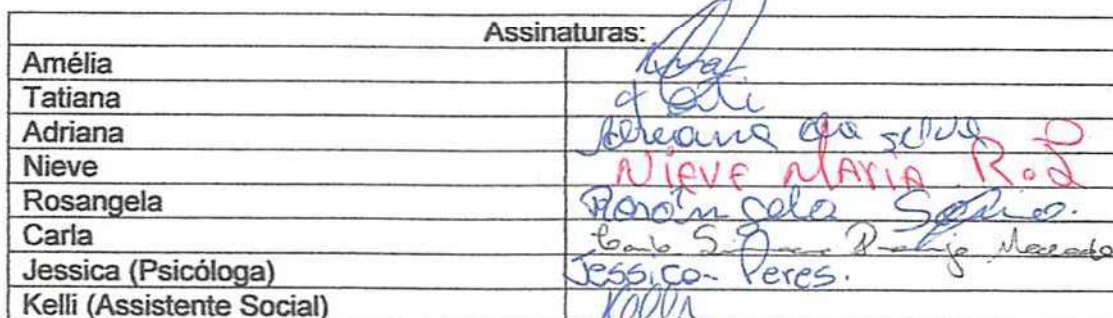 Assinaturas:
Amélia
Tatiana Tati
Adriana Adreana da silva
Nieve NIEVE MARIA
Rosangela Rosângela
Carla Macedo
Jessica (Psicóloga) Jessica Peres.
Kelli (Assistente Social) Kelli